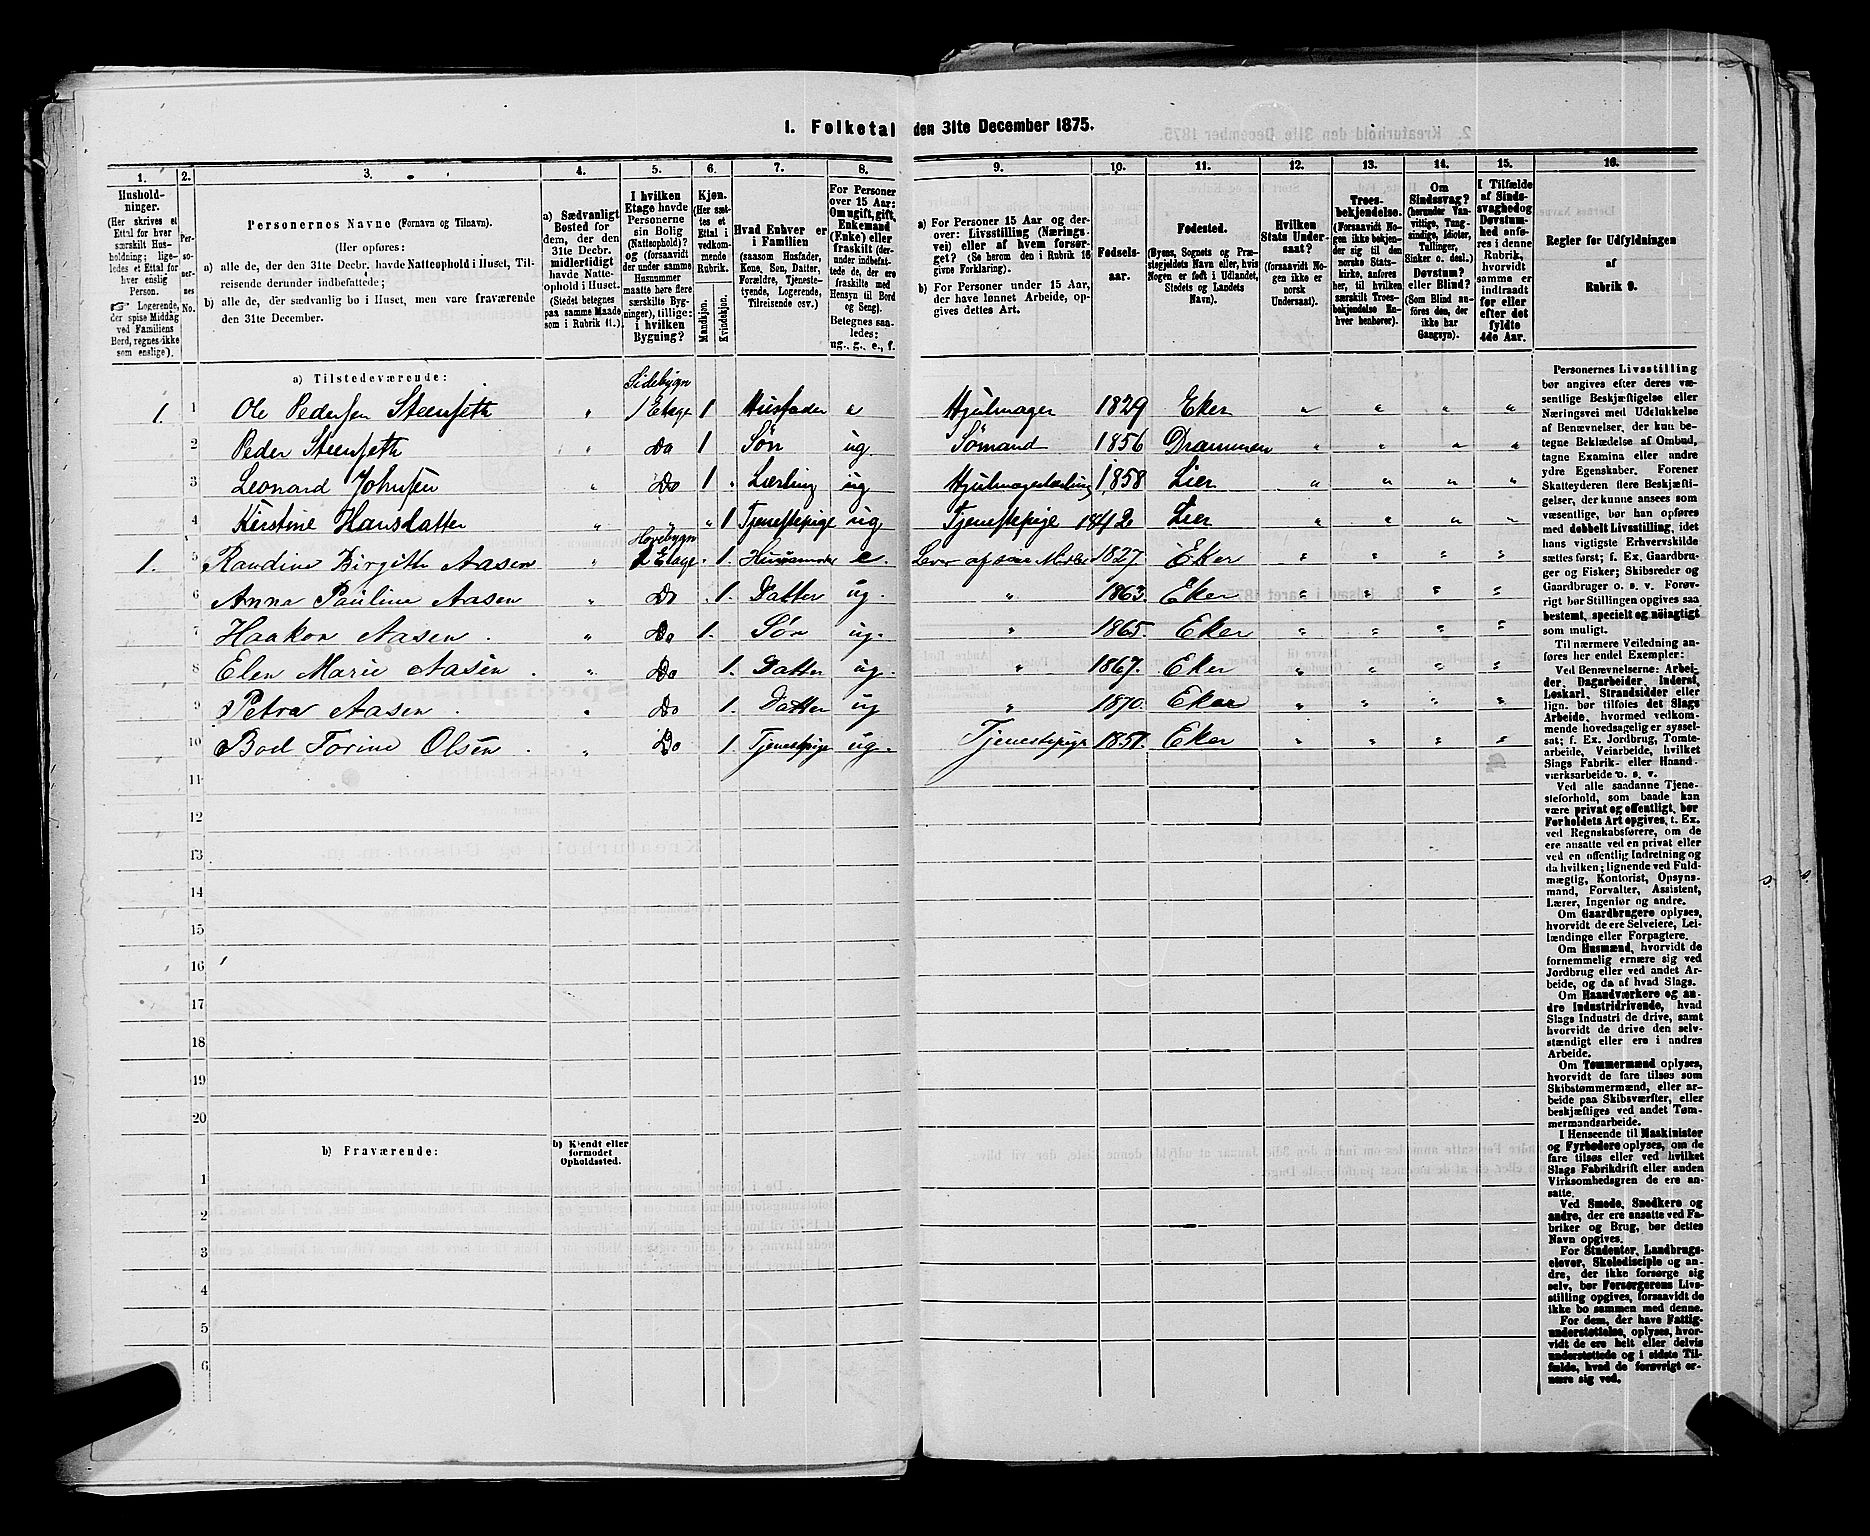 I. Folketal den 31te December 1875.
1.
Husholdninger.
(Her skrives et Ettal for hver særskilt Husholdning; ligeledes et Ettal for hver enslig Person.
☞ Logerende, der spise Middag ved Familiens Bord, regnes ikke som enslige).
2.
Personernes No.
3.
Personernes Navne (Fornavn og Tilnavn).
(Her opføres:
a) alle de, der den 31te Decbr. havde Natteophold i Huset, Tilreisende derunder indbefattede;
b) alle de, der sædvanlig bo i Huset, men vare fraværende den 31te December.
4.
a) Sædvanligt Bosted for dem, der den 31te Decbr. midlertidigt havde Natteophold i Huset.
(Stedet betegnes paa samme Maade som i Rubrik 11.)
5.
I hvilken Etage havde Personerne sin Bolig (Natteophold)? og (forsaavidt der under samme Husnummer maatte høre flere særskilte Bygninger), tillige: i hvilken Bygning?
6.
Kjøn.
(Her sættes et Ettal i vedkommende Rubrik.
Mandkjøn.
Kvindekjøn.
7.
Hvad Enhver er i Familien
(saasom Husfader, Kone, Søn, Datter, Forældre, Tjenestetyende, Logerende, Tilreisende osv.)
8.
For Personer over 15 Aar: Om ugift, gift, Enkemand (Enke) eller fraskilt (derunder indbefattede de, der ere fraskilte med Hensyn til Bord og Seng).
Betegnes saaledes: ug., g., e., f.
9.
a) For Personer 15 Aar og derover: Livsstilling (Næringsvei) eller af hvem forsørget? (Se herom den i Rubrik 16 givne Forklaring).
b) For Personer under 15 Aar, der have lønnet Arbeide, opgives dettes Art.
10.
Fødselsaar.
11.
Fødested.
(Byens, Sognets og Præstegjeldets Navn eller, hvis Nogen er født i Udlandet, Stedets og Landets Navn).
12.
Hvilken Stats Undersaat?
(forsaavidt Nogen ikke er norsk Undersaat).
13.
Troesbekjendelse.
(Forsaavidt Nogen ikke bekjender sig til den norske Statskirke, anføres her, til hvilken særskilt Troesbekjendelse Enhver henhører).
14.
Om Sindssvag? (herunder Vanvittige, Tungsindige, Idioter, Tullinger, Sinker o. desl.) Døvstum? eller Blind? (Som Blind anføres den, der ikke har Gangsyn).
15.
I Tilfælde af Sindssvaghed og Døvstumhed anføres i denne Rubrik, hvorvidt samme er indtraadt før eller efter det fyldte 4de Aar.
16.
Regler for Udfyldningen
af
Rubrik 9.
a) Tilstedeværende:
1. 1 Ole Pedersen Steenseth " Sidebygn 1 Etage 1 Husfader e Hjulmager 1829 Eker " " " "
2 Peder Steenseth " Do 1 Søn ug Sømand 1856 Drammen " " " "
3 Leonard Johnsen " Do 1 " Lærling ug Hjulmagerlærling 1858 Lier " " " "
4 Kirstine Hansdatter " " " 1 Tjenestepige ug Tjenestepige 1842 Lier " " " "
1. 5 Randine Birgitte Aasen " Hovebygn 2 Etage 1. Husmoder e. Lever af sine Midler 1827. Eker " " " "
6 Anna Pauline Aasen " Do 1. Datter ug. " 1863. Eker " " " "
7 Haakon Aasen. " Do 1. Søn ug. " 1865. Eker " " " "
8 Elen Marie Aasen. " Do 1. Datter ug. " 1867. Eker " " " "
9 Petra Aasen. " Do 1. Datter ug " 1870. Eker " " " "
10 Boel Torine Olsen. " Do 1. Tjenestepige ug. Tjenestepige 1851. Eker " " " "
11
12
13
14
15
16
17
18
19
20
b) Fraværende:
b) Kjendt eller formodet Opholdssted.
1
2
3
4
5
6
Personernes Livsstilling
bør angives efter deres væsentlige Beskjæftigelse eller
Næringsvei med Udelukkelse
af Benævnelser, der kun betegne Beklædelse af Ombud,
tagne Examina eller andre
ydre Egenskaber. Forener
Skatteyderen flere Beskjæftigelser, der kunne ansees som
væsentlige, bør han opføres
med dobbelt Livsstilling, idet
hans vigtigste Erhvervskilde
sættes først; f. Ex. Gaardbruger og Fisker; Skibsreder og
Gaardbruger o. s. v. Forøvrigt bør Stillingen opgives saa
bestemt, specielt og nöiagtigt
som muligt.
Til nærmere Veiledning anføres her endel Exempler:
Ved Benævnelserne: Arbeider, Dagarbeider, Inderst,
Løskarl, Strandsidder eller
lign. bør tilføies det Slags
Arbeide, hvormed vedkommende hovedsagelig er sysselsat; f. Ex. Jordbrug, Tomtearbeide, Veiarbeide, hvilket
Slags Fabrik- eller Haandværksarbeide o. s. v.
Ved alle saadanne Tjenesteforhold, som baade kan
være privat og offentligt, bør
Forholdets Art opgives, t. Ex.
ved Regnskabsførere, om de
ere ansatte ved en privat eller
ved en offentlig Indretning og
da hvilken; lignende ved Fuldmægtig, Kontorist, Opsynsmand, Forvalter, Assistent,
Lærer, Ingeniør og andre.
Om Gaardbrugere oplyses,
hvorvidt de ere Selveiere, Leilændinge eller Forpagtere.
Om Husmænd, hvorvidt de
fornemmelig ernære sig ved
Jordbrug eller ved andet Arbeide, og da af hvad Slags.
Om Haandværkere og andre Industridrivende, hvad
Slags Industri de drive, samt
hvorvidt de drive den selvstændigt eller ere i andres
Arbeide.
Om Tømmermænd oplyses,
hvorvidt de fare tilsøs som
Skibstømmermænd, eller arbeide paa Skibsværfter, eller
beskjæftiges ved andet Tømmermandsarbeide.
I Henseende til Maskinister
og Fyrbødere oplyses, om de
fare tilsøs eller ved hvilket
Slags Fabrikdrift eller anden
Virksomhedsgren de ere ansatte.
Ved Smede, Snedkere og
andre, der ere ansatte ved Fabriker og Brug, bør dettes
Navn opgives.
For Studenter, Landbrugselever, Skoledisciple og andre, der ikke forsørge sig
selv, bør Forsørgerens Livsstilling opgives, forsaavidt de
ikke bo sammen med denne.
For dem, der have Fattigunderstøttelse, oplyses, hvorvidt de ere helt eller delvis
understøttede og i sidste Tilfælde, hvad de forøvrigt ernære sig ved.